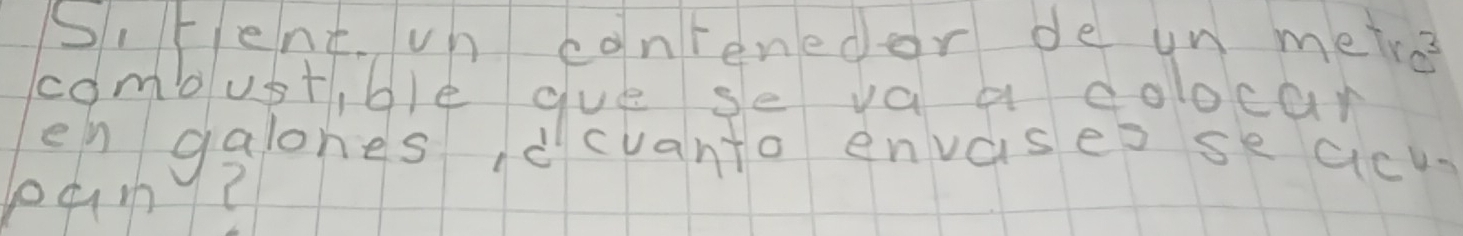 Si tiene un contenedor de un metro³
combustible que se va a colocar
en galones, ¿cuanto envases se acu-
pan?